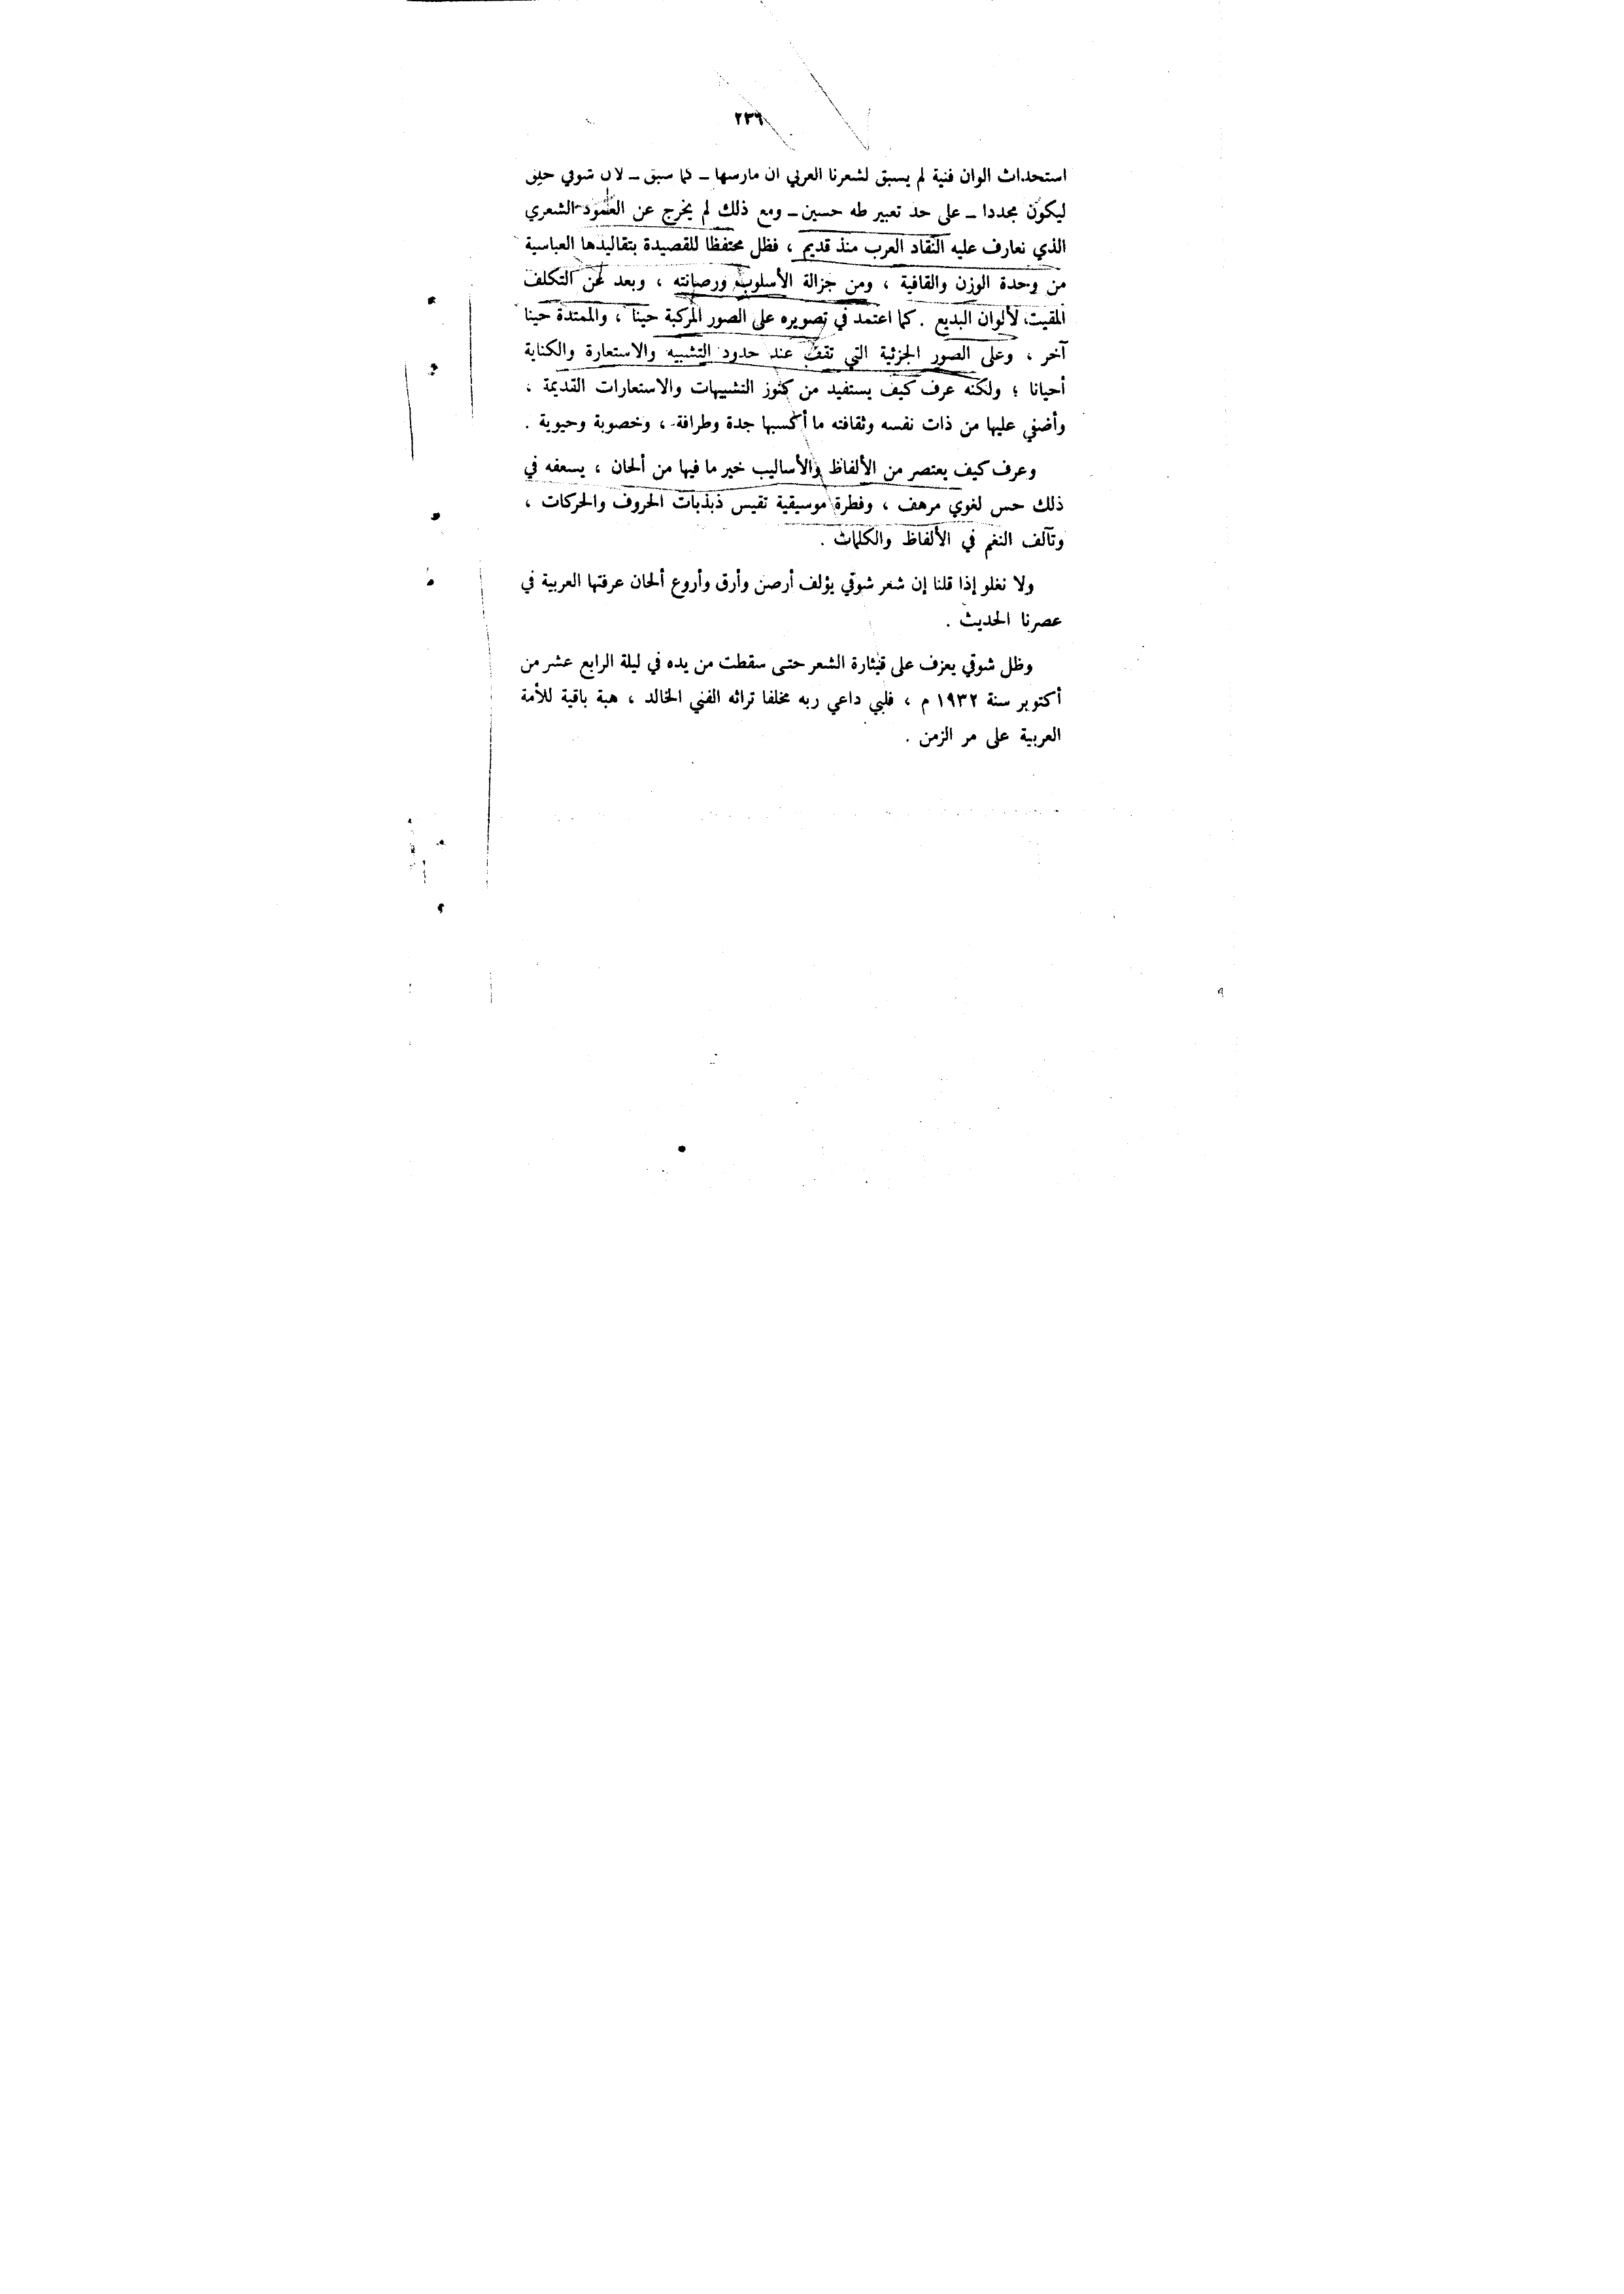 ٢٣٦
استحداث الوان فنية لم يسبق لشعرنا العربي ان مارسها ــ كما سبق ــ لان شوقي خلق
ليكون مجددا ــ على حد تعبير طه حسين ــ ومع ذلك لم يخرج عن العمود الشعري
الذي تعارف عليه النقاد العرب منذ قديم ، فظل محتفظا للقصيدة بتقاليدها العباسية
من وحدة الوزن والقافية ، ومن جزالة الأسلوب ورصانته ، وبعد عن التكلف
المقيت لألوان البديع . كما اعتمد في تصويره على الصور المركبة حينا ، والممتدة حينا
آخر ، وعلى الصور الجزئية التي تقف عند حدود التشبيه والاستعارة والكناية
أحيانا ؛ ولكنه عرف كيف يستفيد من كنوز التشبيهات والاستعارات القديمة ،
وأضفى عليها من ذات نفسه وثقافته ما أكسبها جدة وطرافة ، وخصوبة وحيوية .
وعرف كيف يعتصر من الألفاظ والأساليب خير ما فيها من ألحان ، يسعفه في
ذلك حس لغوي مرهف ، وفطرة موسيقية تقيس ذبذبات الحروف والحركات ،
وتآلف النغم في الألفاظ والكلمات .
ولا نغلو إذا قلنا إن شعر شوقي يؤلف أرصن وأرق وأروع ألحان عرفتها العربية في
عصرنا الحديث .
وظل شوقي يعزف على قيثارة الشعر حتى سقطت من يده في ليلة الرابع عشر من
أكتوبر سنة ١٩٣٢ م ، فلبي داعي ربه مخلفا تراثه الفني الخالد ، هبة باقية للأمة
العربية على مر الزمن .